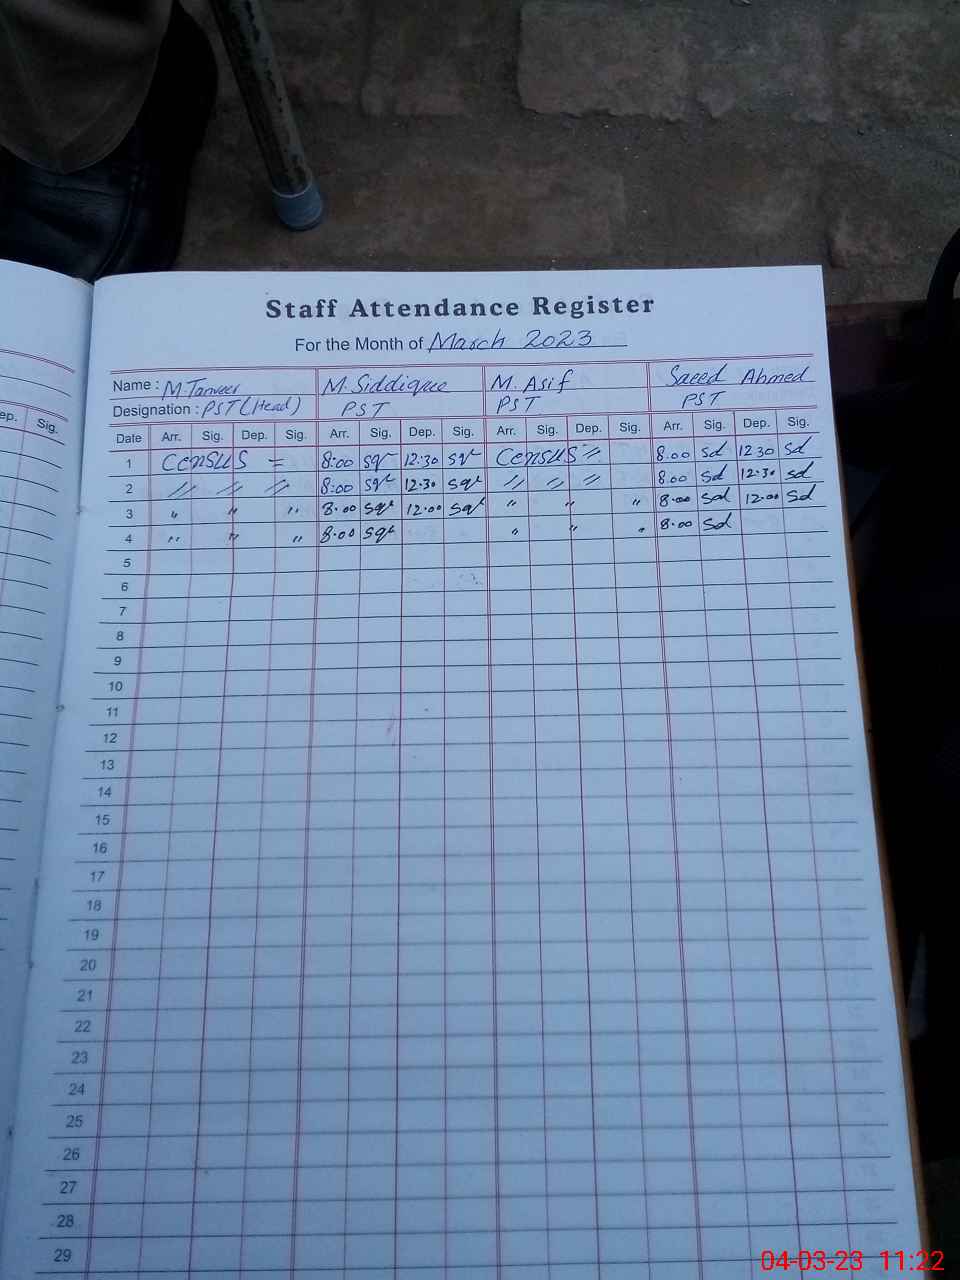 Staff Attendance Register
For the Month of March 2023
Name : M Tanveer M. Siddique M. Asif Saeed Ahmed
Designation : PST (Head) PST PST PST
ep. Sig.
Date Arr. Sig. Dep. Sig. Arr. Sig. Dep. Sig. Arr. Sig. Dep. Sig. Arr. Sig. Dep. Sig.
1 Census = 8:00 sqr 12:30 sqr Census " 8.00 Sd 12 30 Sd
2 " " " 8:00 sqr 12.30 sqr " " " 8.00 Sd 12.30 Sd
3 " " " 8.00 sqr 12.00 sqr " " " 8.00 Sd 12.00 Sd
4 " " " 8.00 sqr " " " 8.00 Sd
5
6
7
8
9
10
11
12
13
14
15
16
17
18
19
20
21
22
23
24
25
26
27
28
29
04-03-23 11:22